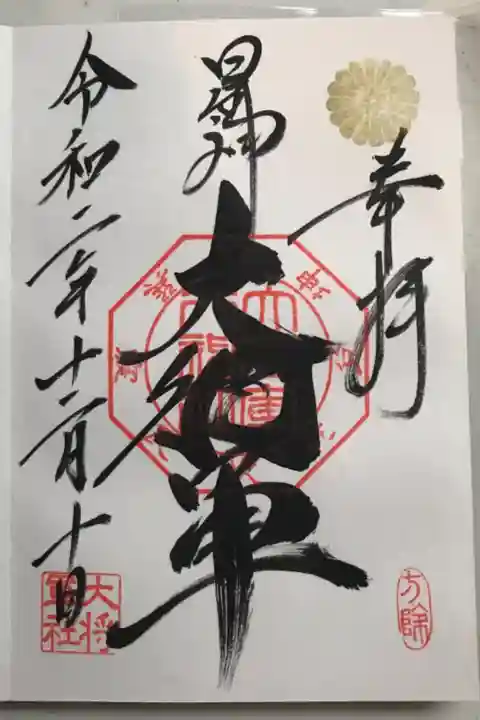 奉拝
星神
大将軍
令和二年十二月十日
方除
大将
軍社